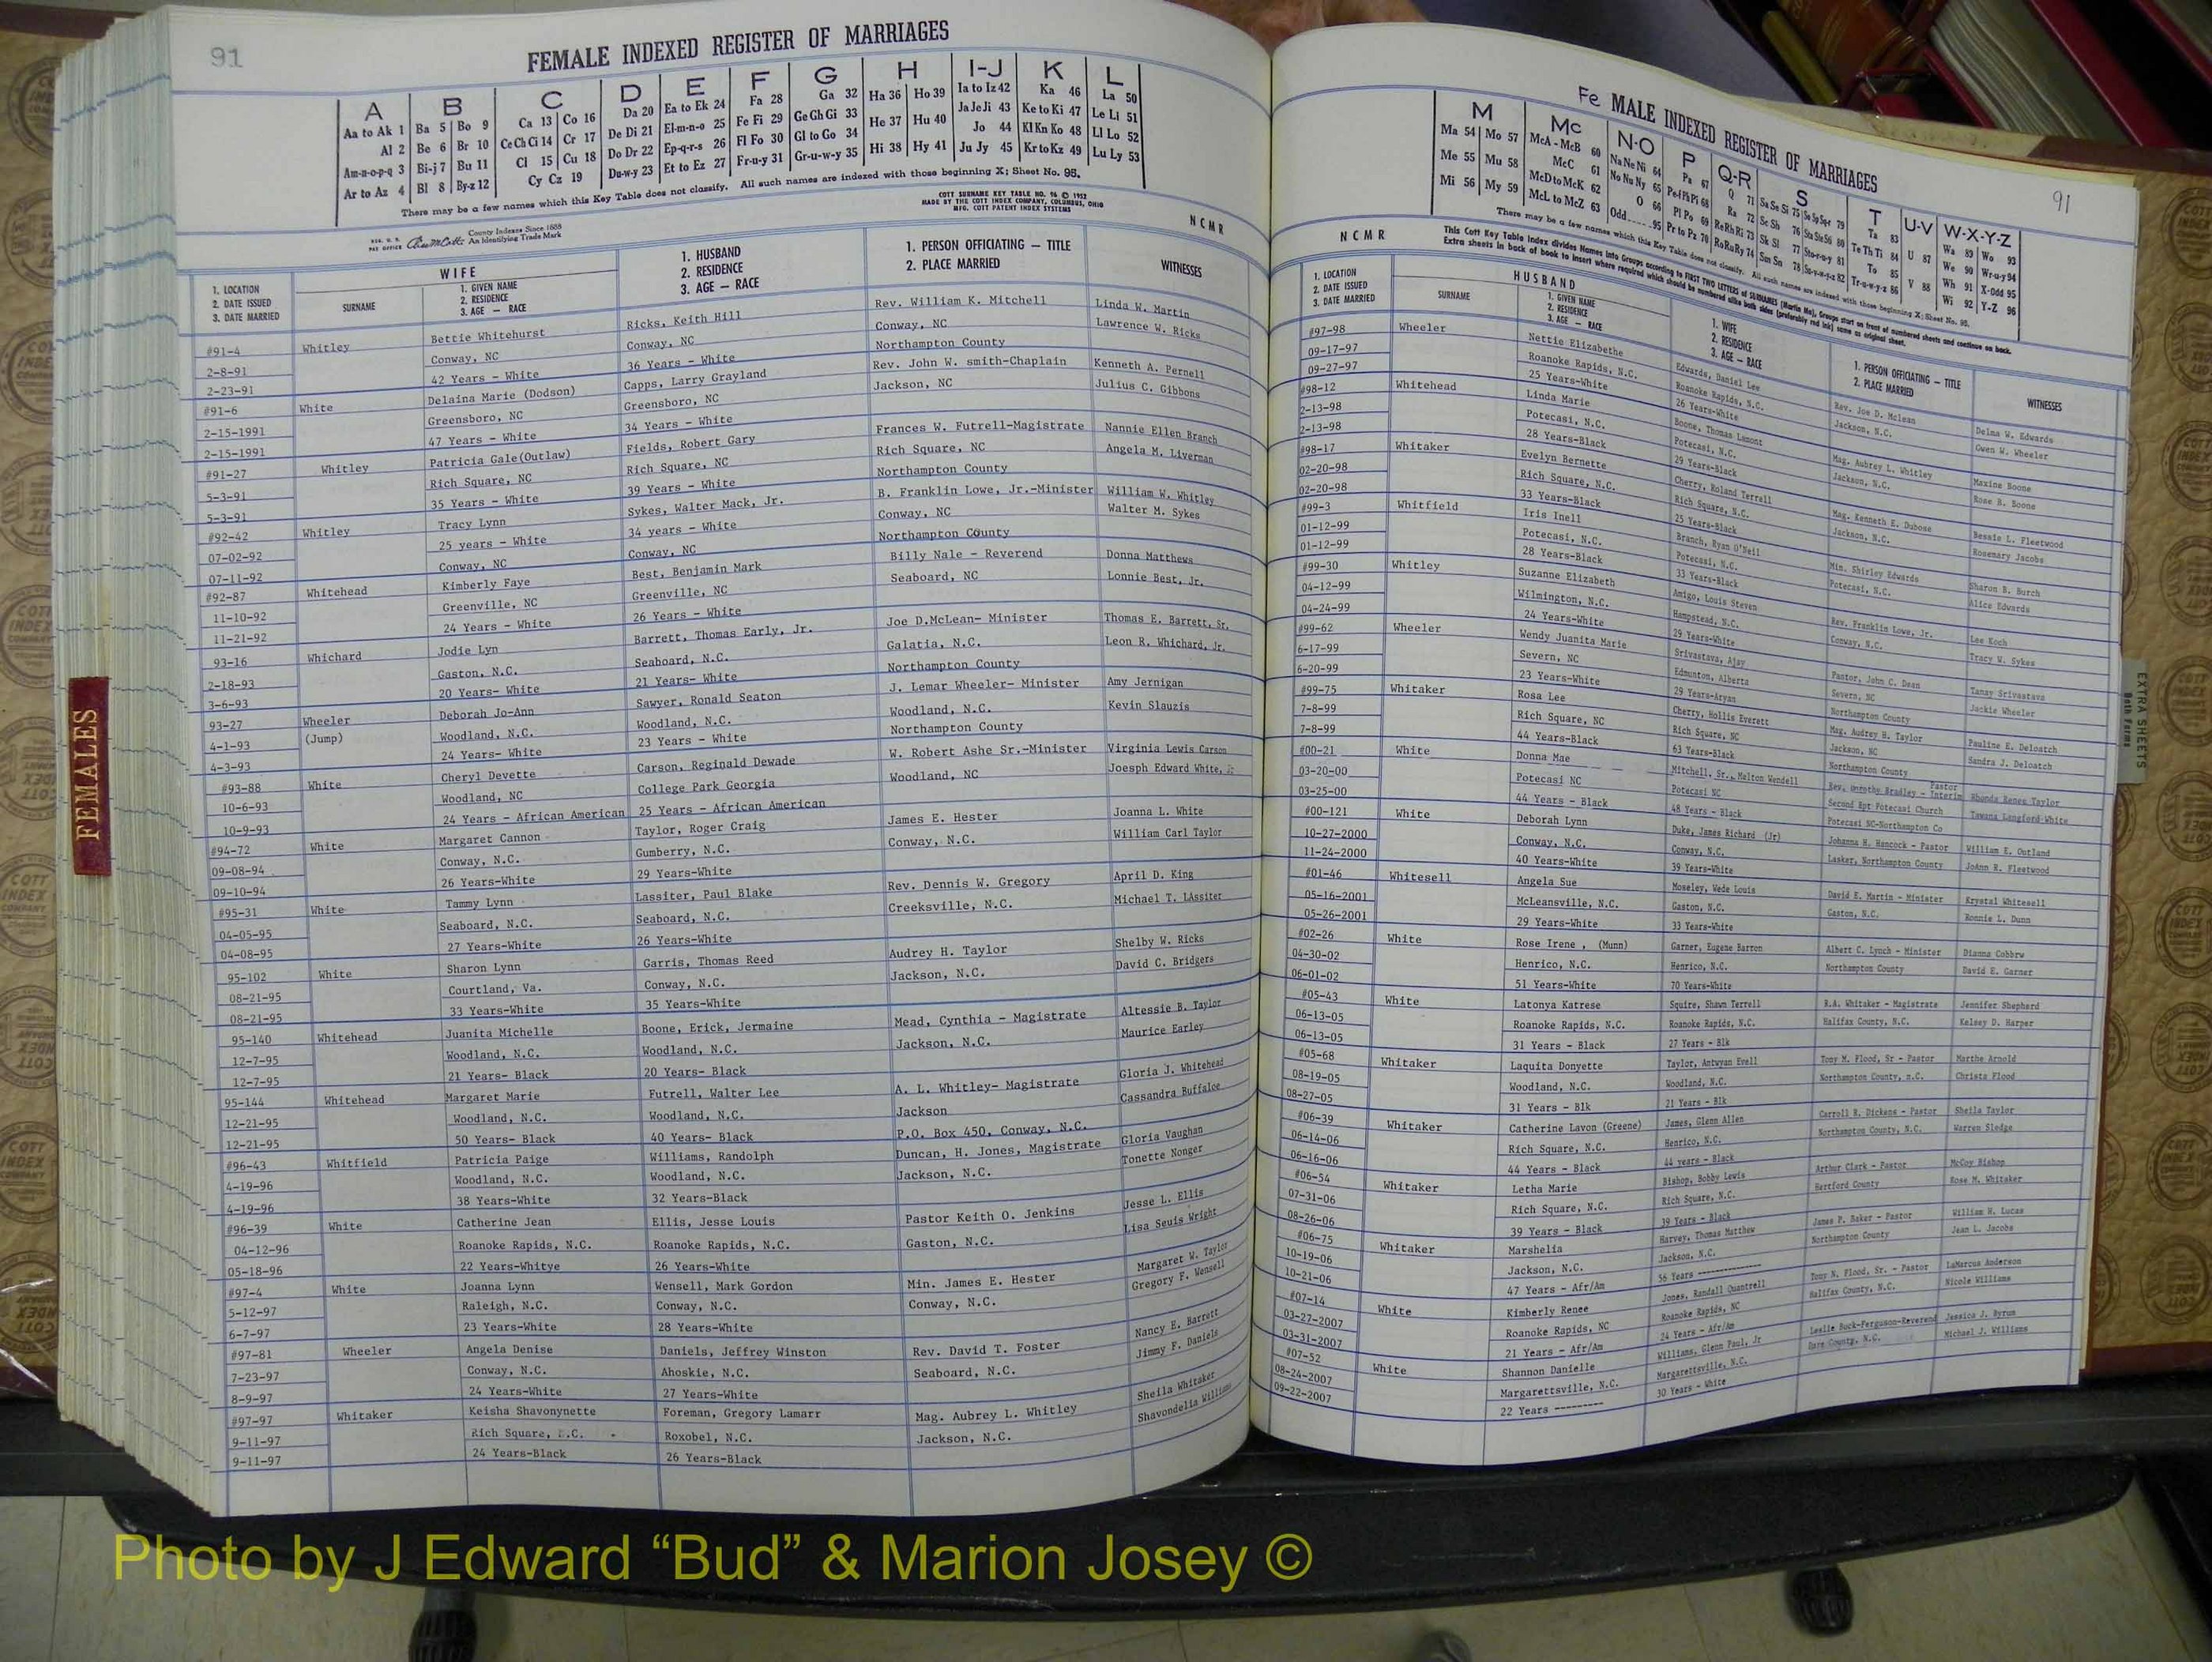 91
FEMALE INDEXED REGISTER OF MARRIAGES
A B C D E F G H I-J K L
Aa to Ak 1 Ba 5 Bo 9 Ca 13 Co 16 Da 20 Ea to Ek 24 Fa 28 Ga 32 Ha 36 Ho 39 Ia to Iz 42 Ka 46 La 50
Al 2 Be 6 Br 10 Ce Ch Ci 14 Cr 17 De Di 21 El-m-n-o 25 Fe Fi 29 Ge Gh Gi 33 He 37 Hu 40 Ja Je Ji 43 Ke to Ki 47 Le Li 51
Am-n-o-p-q 3 Bi-j 7 Bu 11 Cl 15 Cu 18 Do Dr 22 Ep-q-r-s 26 Fl Fo 30 Gl to Go 34 Hi 38 Hy 41 Jo 44 Kl Kn Ko 48 Ll Lo 52
Ar to Az 4 Bl 8 By-z 12 Cy Cz 19 Du-w-y 23 Et to Ez 27 Fr-u-y 31 Gr-u-w-y 35 Ju Jy 45 Kr to Kz 49 Lu Ly 53
There may be a few names which this Key Table does not classify. All such names are indexed with those beginning X; Sheet No. 95.
COTT SURNAME KEY TABLE NO. 96 © 1952
MADE BY THE COTT INDEX COMPANY, COLUMBUS, OHIO
MFG. COTT PATENT INDEX SYSTEMS
REG. U. S. PAT OFFICE
County Indexes Since 1888
An Identifying Trade Mark
N C M R
1. LOCATION
2. DATE ISSUED
3. DATE MARRIED
WIFE
SURNAME
1. GIVEN NAME
2. RESIDENCE
3. AGE — RACE
1. HUSBAND
2. RESIDENCE
3. AGE — RACE
1. PERSON OFFICIATING — TITLE
2. PLACE MARRIED
WITNESSES
#91-4 Whitley Bettie Whitehurst Ricks, Keith Hill Rev. William K. Mitchell Linda W. Martin
2-8-91 Conway, NC Conway, NC Conway, NC Lawrence W. Ricks
2-23-91 42 Years - White 36 Years - White Northampton County
#91-6 White Delaina Marie (Dodson) Capps, Larry Grayland Rev. John W. smith-Chaplain Kenneth A. Pernell
2-15-1991 Greensboro, NC Greensboro, NC Jackson, NC Julius C. Gibbons
2-15-1991 47 Years - White 34 Years - White
#91-27 Whitley Patricia Gale(Outlaw) Fields, Robert Gary Frances W. Futrell-Magistrate Nannie Ellen Branch
5-3-91 Rich Square, NC Rich Square, NC Rich Square, NC Angela M. Liverman
5-3-91 35 Years - White 39 Years - White Northampton County
#92-42 Whitley Tracy Lynn Sykes, Walter Mack, Jr. B. Franklin Lowe, Jr.-Minister William W. Whitley
07-02-92 25 years - White 34 years - White Conway, NC Walter M. Sykes
07-11-92 Conway, NC Conway, NC Northampton County
#92-87 Whitehead Kimberly Faye Best, Benjamin Mark Billy Nale - Reverend Donna Matthews
11-10-92 Greenville, NC Greenville, NC Seaboard, NC Lonnie Best, Jr.
11-21-92 24 Years - White 26 Years - White
93-16 Whichard Jodie Lyn Barrett, Thomas Early, Jr. Joe D.McLean- Minister Thomas E. Barrett, Sr.
2-18-93 Gaston, N.C. Seaboard, N.C. Galatia, N.C. Leon R. Whichard, Jr.
3-6-93 20 Years- White 21 Years- White Northampton County
93-27 Wheeler Deborah Jo-Ann Sawyer, Ronald Seaton J. Lemar Wheeler- Minister Amy Jernigan
4-1-93 (Jump) Woodland, N.C. Woodland, N.C. Woodland, N.C. Kevin Slauzis
4-3-93 24 Years- White 23 Years - White Northampton County
#93-88 White Cheryl Devette Carson, Reginald Dewade W. Robert Ashe Sr.-Minister Virginia Lewis Carson
10-6-93 Woodland, NC College Park Georgia Woodland, NC Joesph Edward White, Jr
10-9-93 24 Years - African American 25 Years - African American
#94-72 White Margaret Cannon Taylor, Roger Craig James E. Hester Joanna L. White
09-08-94 Conway, N.C. Gumberry, N.C. Conway, N.C. William Carl Taylor
09-10-94 26 Years-White 29 Years-White
#95-31 White Tammy Lynn Lassiter, Paul Blake Rev. Dennis W. Gregory April D. King
04-05-95 Seaboard, N.C. Seaboard, N.C. Creeksville, N.C. Michael T. LAssiter
04-08-95 27 Years-White 26 Years-White
95-102 White Sharon Lynn Garris, Thomas Reed Audrey H. Taylor Shelby W. Ricks
08-21-95 Courtland, Va. Conway, N.C. Jackson, N.C. David C. Bridgers
08-21-95 33 Years-White 35 Years-White
95-140 Whitehead Juanita Michelle Boone, Erick, Jermaine Mead, Cynthia - Magistrate Altessie B. Taylor
12-7-95 Woodland, N.C. Woodland, N.C. Jackson, N.C. Maurice Earley
12-7-95 21 Years- Black 20 Years- Black
95-144 Whitehead Margaret Marie Futrell, Walter Lee A. L. Whitley- Magistrate Gloria J. Whitehead
12-21-95 Woodland, N.C. Woodland, N.C. Jackson Cassandra Buffaloe
12-21-95 50 Years- Black 40 Years- Black P.O. Box 450, Conway, N.C.
#96-43 Whitfield Patricia Paige Williams, Randolph Duncan, H. Jones, Magistrate Gloria Vaughan
4-19-96 Woodland, N.C. Woodland, N.C. Jackson, N.C. Tonette Nonger
4-19-96 38 Years-White 32 Years-Black
#96-39 White Catherine Jean Ellis, Jesse Louis Pastor Keith O. Jenkins Jesse L. Ellis
04-12-96 Roanoke Rapids, N.C. Roanoke Rapids, N.C. Gaston, N.C. Lisa Seuis Wright
05-18-96 22 Years-Whitye 26 Years-White
#97-4 White Joanna Lynn Wensell, Mark Gordon Min. James E. Hester Margaret W. Taylor
5-12-97 Raleigh, N.C. Conway, N.C. Conway, N.C. Gregory F. Wensell
6-7-97 23 Years-White 28 Years-White
#97-81 Wheeler Angela Denise Daniels, Jeffrey Winston Rev. David T. Foster Nancy E. Barrett
7-23-97 Conway, N.C. Ahoskie, N.C. Seaboard, N.C. Jimmy F. Daniels
8-9-97 24 Years-White 27 Years-White
#97-97 Whitaker Keisha Shavonynette Foreman, Gregory Lamarr Mag. Aubrey L. Whitley Sheila Whitaker
9-11-97 Rich Square, N.C. Roxobel, N.C. Jackson, N.C. Shavondelia William
9-11-97 24 Years-Black 26 Years-Black
FEMALES
Fe MALE INDEXED REGISTER OF MARRIAGES
91
M Mc N-O P Q-R S T U-V W-X-Y-Z
Ma 54 Mo 57 McA - McB 60 Na Ne Ni 64 Pa 67 Q 71 Sa Se Si 75 So Sp Sq 79 Ta 83 U 87 Wa 89 Wo 93
Me 55 Mu 58 McC 61 No Nu Ny 65 Pe Pf Ph Pi 68 Ra 72 Sc Sh 76 Sta Ste Sti 80 Te Th Ti 84 V 88 We 90 Wr-u-y 94
Mi 56 My 59 McD to McK 62 O 66 Pl Po 69 Re Rh Ri 73 Sk Sl 77 Sto-r-u-y 81 To 85 Wh 91 X-Odd 95
McL to McZ 63 Odd 95 Pr to Pz 70 Ro Ru Ry 74 Sm Sn 78 Su-v-w-y-z 82 Tr-u-w-y-z 86 Wi 92 Y-Z 96
There may be a few names which this Key Table does not classify. All such names are indexed with those beginning X; Sheet No. 95.
This Cott Key Table Index divides Names into Groups according to FIRST TWO LETTERS of SURNAMES (Martin Ma). Groups start on front of numbered sheets and continue on back.
Extra sheets in back of book to insert where required which should be numbered alike both sides (preferably red ink) same as original sheet.
N C M R
1. LOCATION
2. DATE ISSUED
3. DATE MARRIED
HUSBAND
SURNAME
1. GIVEN NAME
2. RESIDENCE
3. AGE — RACE
1. WIFE
2. RESIDENCE
3. AGE — RACE
1. PERSON OFFICIATING — TITLE
2. PLACE MARRIED
WITNESSES
#97-98 Wheeler Nettie Elizabethe Edwards, Daniel Lee Rev. Joe D. Mclean Delma W. Edwards
09-17-97 Roanoke Rapids, N.C. Roanoke Rapids, N.C. Jackson, N.C. Owen W. Wheeler
09-27-97 25 Years-White 26 Years-White
#98-12 Whitehead Linda Marie Boone, Thomas Lamont Mag. Aubrey L. Whitley Maxine Boone
2-13-98 Potecasi, N.C. Potecasi, N.C. Jackson, N.C. Rose B. Boone
2-13-98 28 Years-Black 29 Years-Black
#98-17 Whitaker Evelyn Bernette Cherry, Roland Terrell Mag. Kenneth E. Dubose Bessie L. Fleetwood
02-20-98 Rich Square, N.C. Rich Square, N.C. Jackson, N.C. Rosemary Jacobs
02-20-98 33 Years-Black 25 Years-Black
#99-3 Whitfield Iris Inell Branch, Ryan O'Neil Min. Shirley Edwards Sharon B. Burch
01-12-99 Potecasi, N.C. Potecasi, N.C. Potecasi, N.C. Alice Edwards
01-12-99 28 Years-Black 33 Years-Black
#99-30 Whitley Suzanne Elizabeth Amigo, Louis Steven Rev. Franklin Lowe, Jr. Lee Koch
04-12-99 Wilmington, N.C. Hampstead, N.C. Conway, N.C. Tracy W. Sykes
04-24-99 24 Years-White 29 Years-White
#99-62 Wheeler Wendy Juanita Marie Srivastava, Ajay Pastor, John C. Dean Tanay Srivastava
6-17-99 Severn, NC Edmunton, Alberta Severn, NC Jackie Wheeler
6-20-99 23 Years-White 29 Years-Aryan Northampton County
#99-75 Whitaker Rosa Lee Cherry, Hollis Everett Mag. Audrey H. Taylor Pauline E. Deloatch
7-8-99 Rich Square, NC Rich Square, NC Jackson, NC Sandra J. Deloatch
7-8-99 44 Years-Black 63 Years-Black Northampton County
#00-21 White Donna Mae Mitchell, Sr., Melton Wendell Rev. Dorothy Bradley - Pastor Interim Rhonda Renee Taylor
03-20-00 Potecasi NC Potecasi NC Second Bpt Potecasi Church Tawana Langford-White
03-25-00 44 Years - Black 48 Years - Black Potecasi NC-Northampton Co
#00-121 White Deborah Lynn Duke, James Richard (Jr) Johanna H. Hancock - Pastor William E. Outland
10-27-2000 Conway, N.C. Conway, N.C. Lasker, Northampton County JoAnn R. Fleetwood
11-24-2000 40 Years-White 39 Years-White
#01-46 Whitesell Angela Sue Moseley, Wede Louis David E. Martin - Minister Krystal Whitesell
05-16-2001 McLeansville, N.C. Gaston, N.C. Gaston, N.C. Ronnie L. Dunn
05-26-2001 29 Years-White 33 Years-White
#02-26 White Rose Irene , (Munn) Garner, Eugene Barron Albert C. Lynch - Minister Dianna Cobbrw
04-30-02 Henrico, N.C. Henrico, N.C. Northampton County David E. Garner
06-01-02 51 Years-White 70 Years-White
#05-43 White Latonya Katrese Squire, Shawn Terrell R.A. Whitaker - Magistrate Jennifer Shepherd
06-13-05 Roanoke Rapids, N.C. Roanoke Rapids, N.C. Halifax County, N.C. Kelsey D. Harper
06-13-05 31 Years - Black 27 Years - Blk
#05-68 Whitaker Laquita Donyette Taylor, Antwyan Evell Tony M. Flood, Sr - Pastor Marthe Arnold
08-19-05 Woodland, N.C. Woodland, N.C. Northampton County, n.C. Christa Flood
08-27-05 31 Years - Blk 21 Years - Blk
#06-39 Whitaker Catherine Lavon (Greene) James, Glenn Allen Carroll R. Dickens - Pastor Sheila Taylor
06-14-06 Rich Square, N.C. Henrico, N.C. Northampton County, N.C. Warren Sledge
06-16-06 44 Years - Black 44 years - Black
#06-54 Whitaker Letha Marie Bishop, Bobby Lewis Arthur Clark - Pastor McCoy Bishop
07-31-06 Rich Square, N.C. Rich Square, N.C. Hertford County Rose M. Whitaker
08-26-06 39 Years - Black 39 Years - Black
#06-75 Whitaker Marshelia Harvey, Thomas Matthew James P. Baker - Pastor William H. Lucas
10-19-06 Jackson, N.C. Jackson, N.C. Northampton County Jean L. Jacobs
10-21-06 47 Years - Afr/Am 56 Years --------------
#07-14 White Kimberly Renee Jones, Randall Quantrell Tony N. Flood, Sr. - Pastor LaMarcus Anderson
03-27-2007 Roanoke Rapids, NC Roanoke Rapids, NC Halifax County, N.C. Nicole Williams
03-31-2007 21 Years - Afr/Am 24 Years - Afr/Am
#07-52 White Shannon Danielle Williams, Glenn Paul, Jr Leslie Buck-Ferguson-Reverend Jessica J. Byrum
08-24-2007 Margarettsville, N.C. Margarettsville, N.C. Dare County, N.C. Michael J. Williams
09-22-2007 22 Years --------- 30 Years - White
EXTRA SHEETS
Both Forms
Photo by J Edward “Bud” & Marion Josey ©